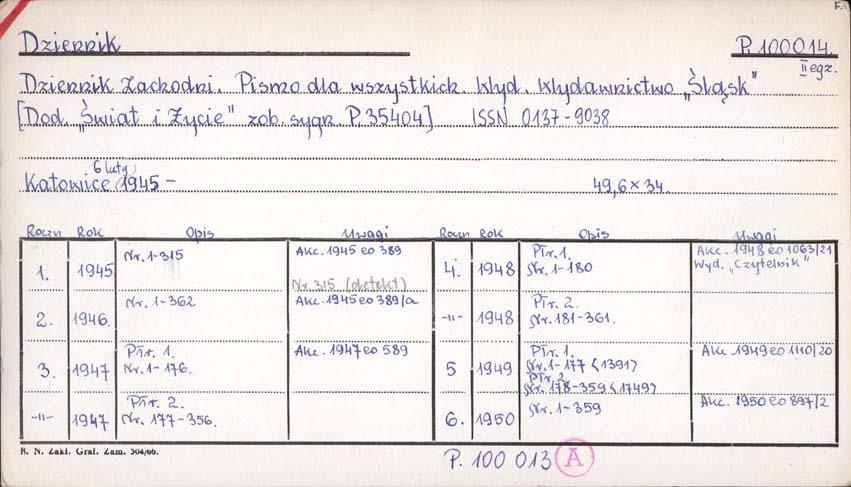 Dziennik P. 100014.
II egz.
Dziennik Zachodni. Pismo dla wszystkich. Wyd. Wydawnictwo „Śląsk"
[Dod. „Świat i Życie" zob. sygn. P. 35404] ISSN 0137-9038
6 luty
Katowice 1945 – 49,6 × 34.
Roczn Rok Opis Uwagi Roczn Rok Opis Uwagi
1. 1945 Nr. 1-315 Akc. 1945 eo 389
Nr. 315 (defekt)
2. 1946. Nr. 1-362 Akc. 1945 eo 389/a
3. 1947 Płr. 1. Akc. 1947 eo 589
Nr. 1-176.
-"- 1947 Płr. 2.
Nr. 177-356.
4. 1948 Płr. 1. Akc. 1948 eo 1063/21
Nr. 1-180 Wyd. „Czytelnik"
-"- 1948 Płr. 2.
Nr. 181-361.
5 1949 Płr. 1. Akc. 1949 eo 1110/20
Nr. 1-177 <1391>
Płr. 2
Nr. 178-359 <1749>
6. 1950 Nr. 1-359 Akc. 1950 eo 897/2
B. N. Zakł. Graf. Zam. 304/66.
P. 100 013 A